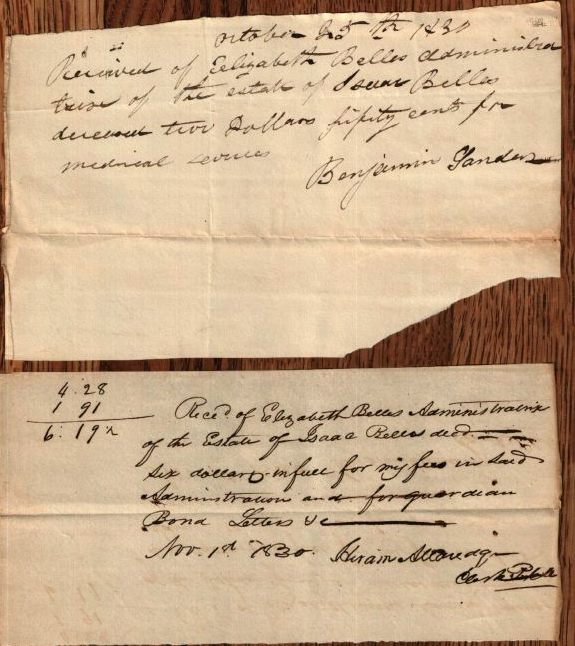 October 25th 1830
Received of Eelizabeth Belles Administra
trix of the estate of Isaac Belles
deceased two Dollars fifity cents for
medical servies
Benjamin Sanders
4.28
1 91
6.19
Rec.d of Elizabeth Belles Administratrix
of the Estate of Isaac Belles decd
six dollars in full for my fees in said
Administration and for guardian
Bond Letters &c
Nov. 1st 1830. Hiram
Clerk